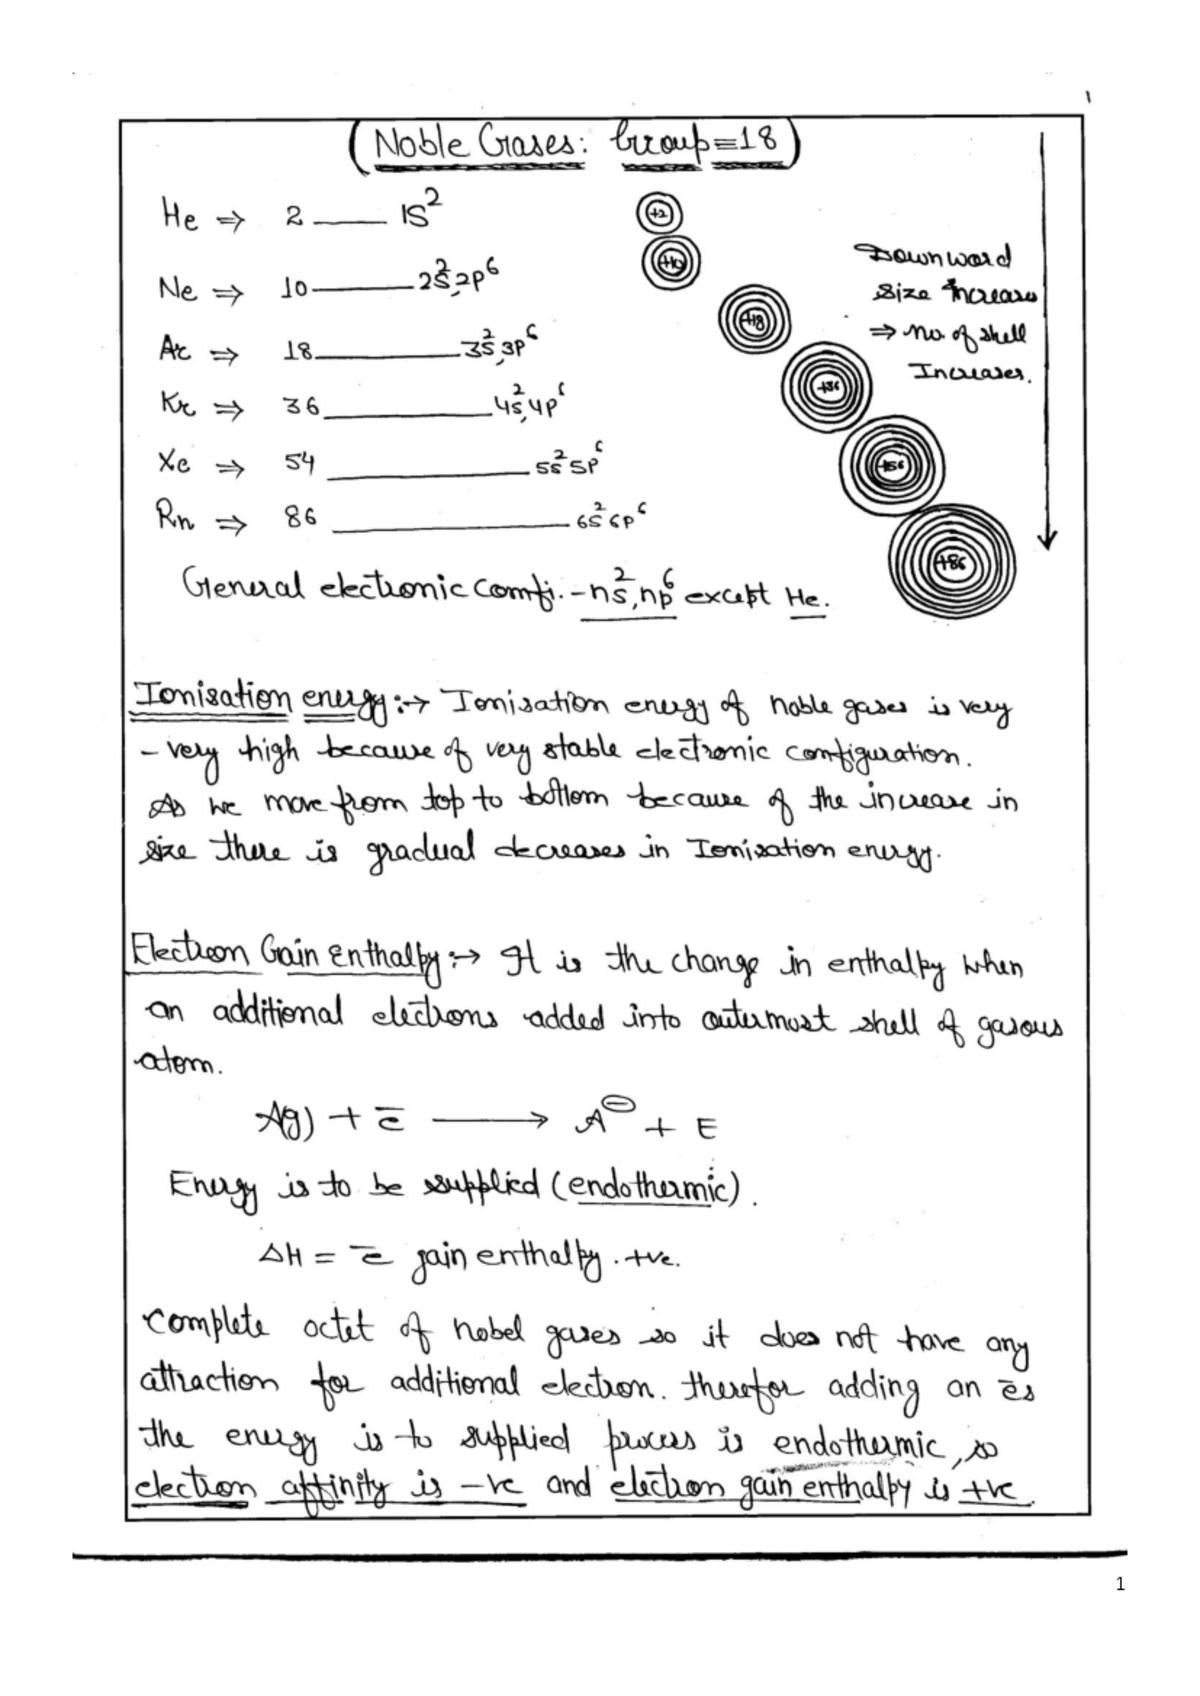 1
(Noble Gases: Group=18)
He ⇒ 2 —— 1S²
Ne ⇒ 10 —— 2S²,2P⁶
Ar ⇒ 18 —— 3S²,3P⁶
Kr ⇒ 36 —— 4S²,4P⁶
Xe ⇒ 54 —— 5S² 5P⁶
Rn ⇒ 86 —— 6S² 6P⁶
+2
+10
+18
+36
+86
Downword
Size Increases
⇒ no. of shell
Increases.
General electronic Comfi. – nS²,nP⁶ except He.
Ionisation energy:→ Ionisation energy of noble gases is very
– very high because of very stable electronic configuration.
As we move from top to bottom because of the increase in
size there is gradual decreases in Ionisation energy.
Electron Gain Enthalpy:→ It is the change in enthalpy when
an additional electrons added into outermost shell of gasous
atom.
A(g) + e̅ ⟶ A⊖ + E
Energy is to be supplied (endothermic).
ΔH = e̅ gain enthalpy. +ve.
Complete octet of nobel gases so it does not have any
attraction for additional electron. therefor adding an e̅s
the energy is to supplied process is endothermic, so
electron affinity is –ve and electron gain enthalpy is +ve.
1